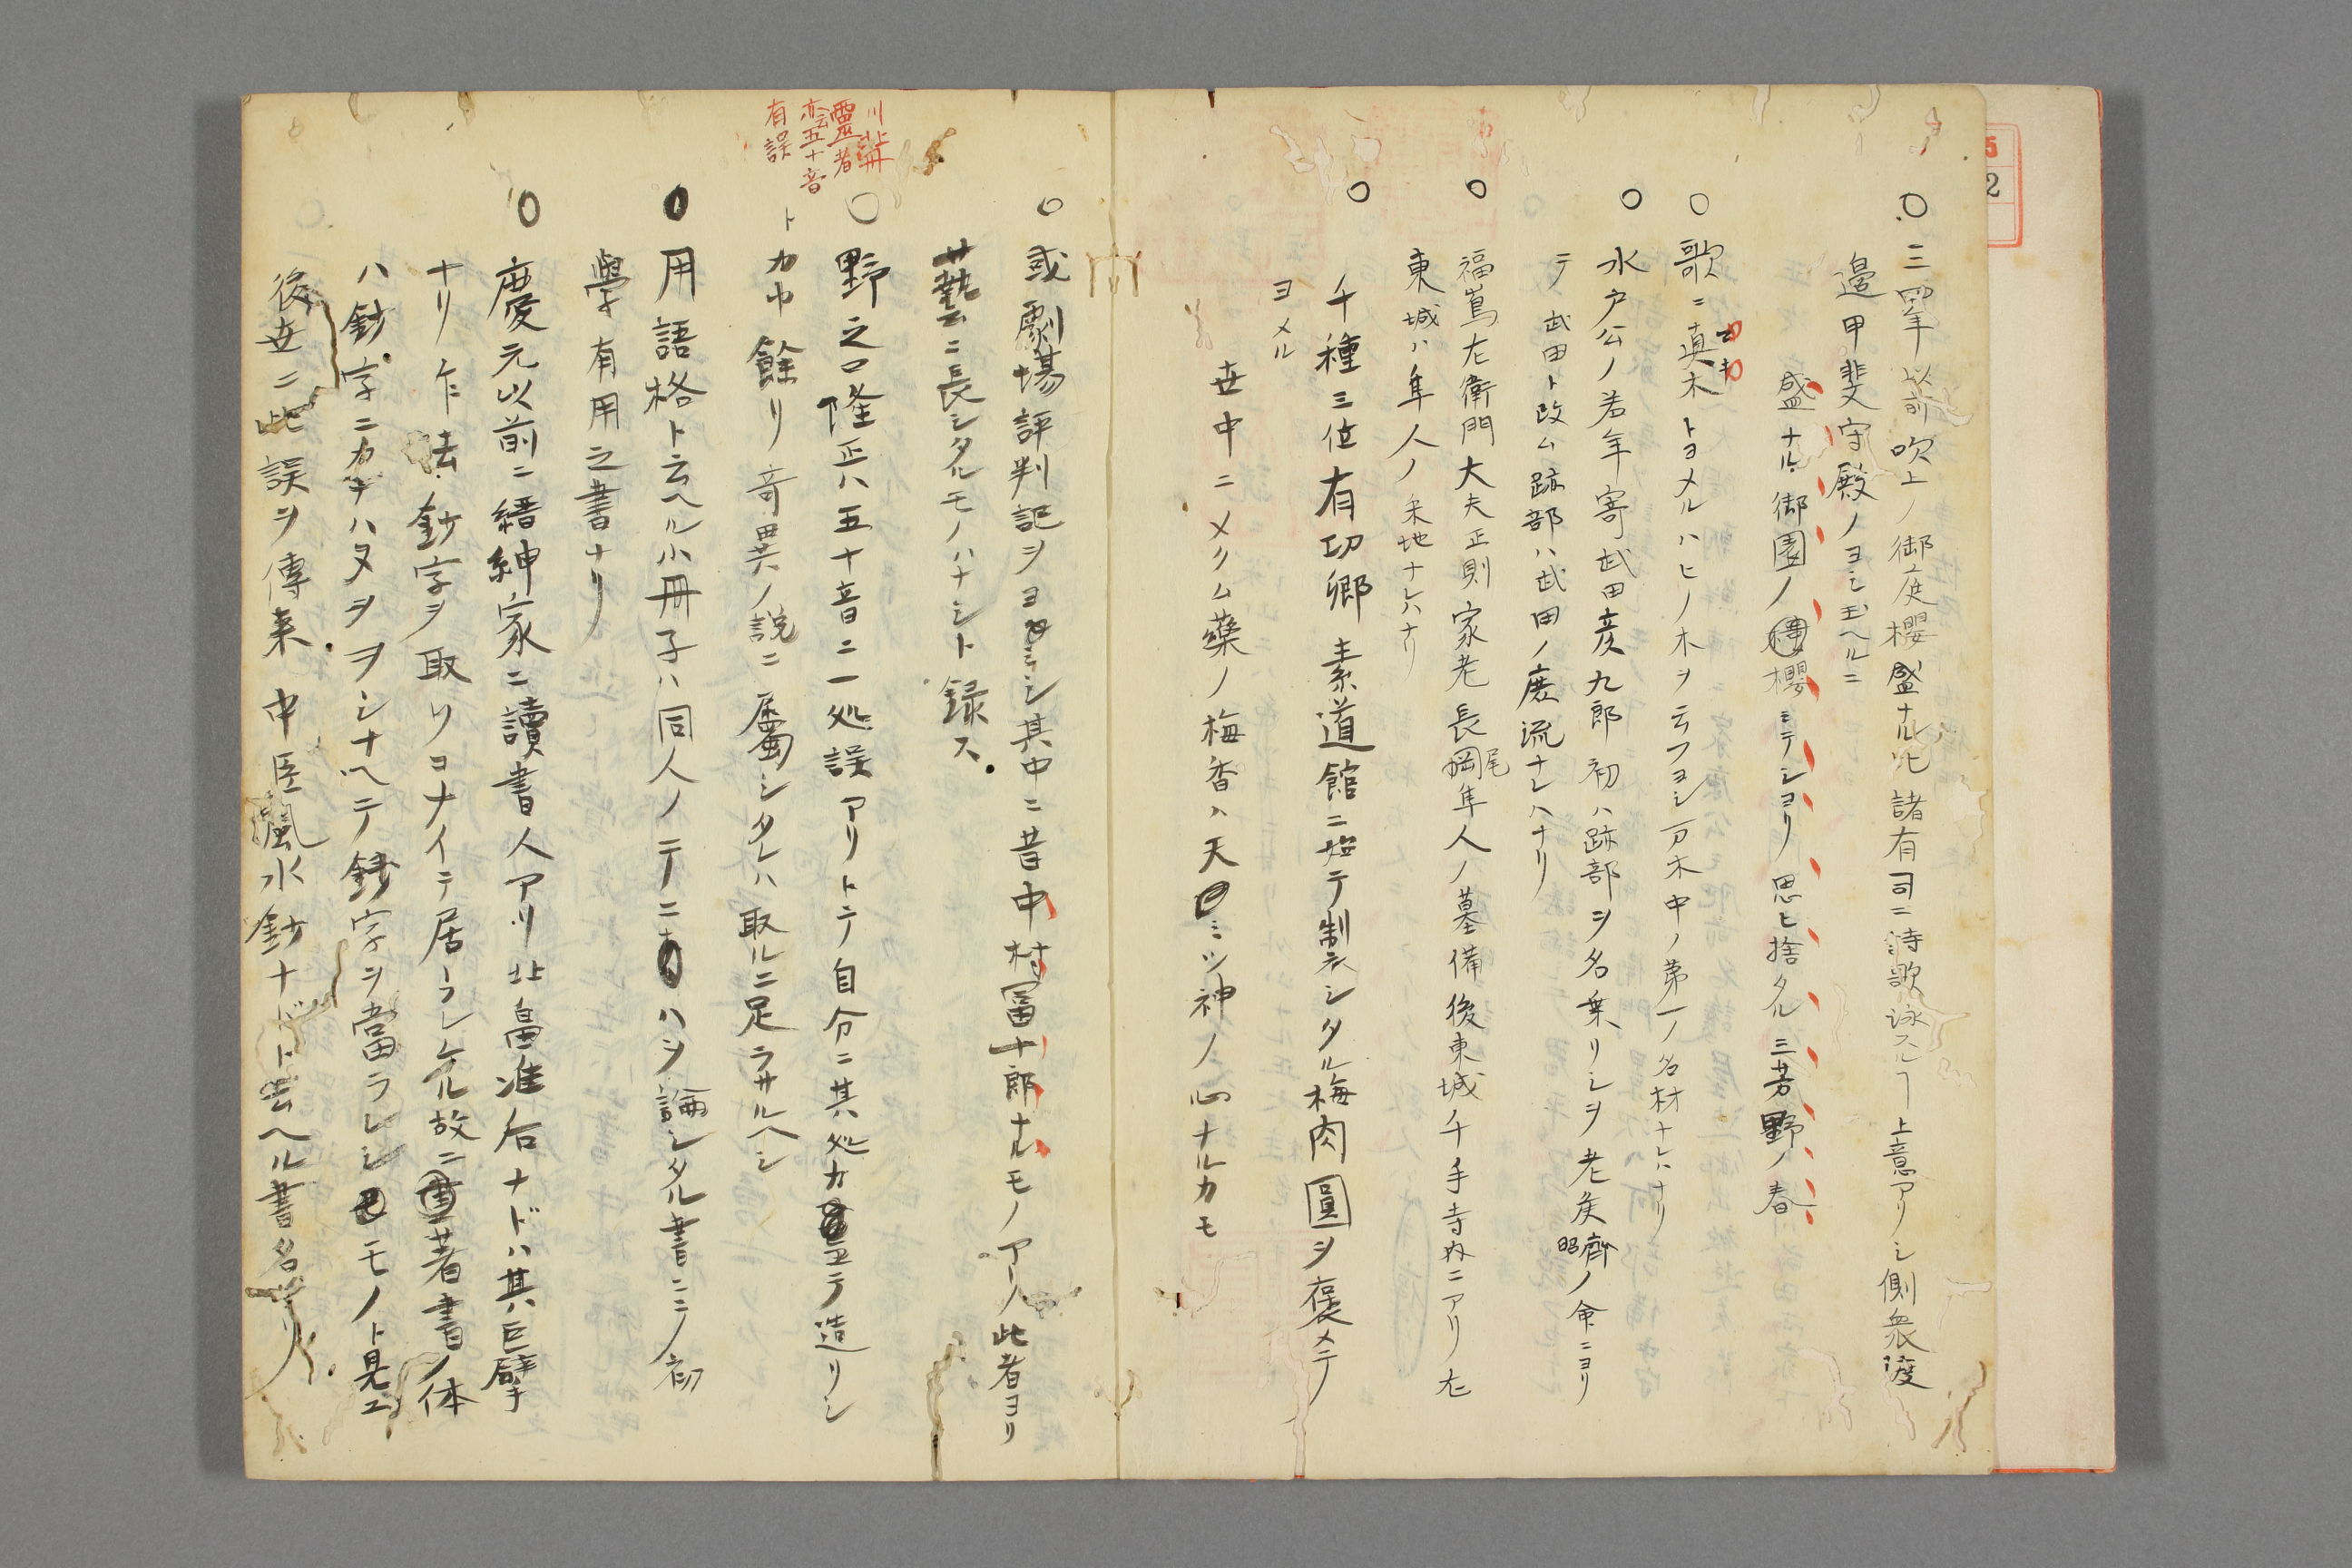 ○三四年以前吹上ノ御庭櫻盛ナル比諸有司ニ詩歌詠スヘー上意アリシ側衆渡
邉甲斐守殿ノヨシ玉ヘルニ
盛ナル御園ノ櫻ミテシヨリ思ヒ捨タル三芳野ノ春
○歌ニ真木トヨメルハヒノ木ヲ云フヨシ万木中ノ第一ノ名材ナレハナリ
マキ
○水戸公ノ若年寄武田彦九郎初ハ跡部ヲ名乗リシヲ老侯齊昭ノ命ニヨリ
テ武田ト改ム跡部ハ武田ノ庶流ナレハナリ
○福嶌左衛門大夫正則家老長尾隼人ノ墓備後東城千手寺内ニアリ左
東城ハ隼人ノ采地ナレハナリ
○千種三位有功卿素道館ニ始テ製シタル梅肉圓ヲ褒メテ
ヨメル
世中ニメクム藥ノ梅香ハ天ミツ神ノ心ナルカモ
○或劇場評判記ヲヨミシ其中ニ昔中村冨十郎ナルモノアリ此者ヨリ
藝ニ長シタルモノハナシト録ス
○野之口隆正ハ五十音ニ一処誤アリトテ自分ニ其処カ
テ造リシ
トカ中餘リ竒異ノ説ニ屬シタレハ取ルニ足ラサルヘシ
川北
靈者
五十音
有誤
○用語格ト云ヘル小冊子ハ同人ノテニヲハヲ論シタル書ニテ初
學有用之書ナリ
○慶元以前ニ縉紳家ニ讀書人アリ北畠准后ナドハ其巨擘
ナリ乍去鈔字ヲ取リヨナイテ居ラレケル故ニ著書ノ体
ハ鈔字ニカキハヌヲヲシナヘテ鈔字ヲ當ラレシモノト見エ
後世ニ此誤ヲ傳来中臣風水鈔ナドト云ヘル書名アリ